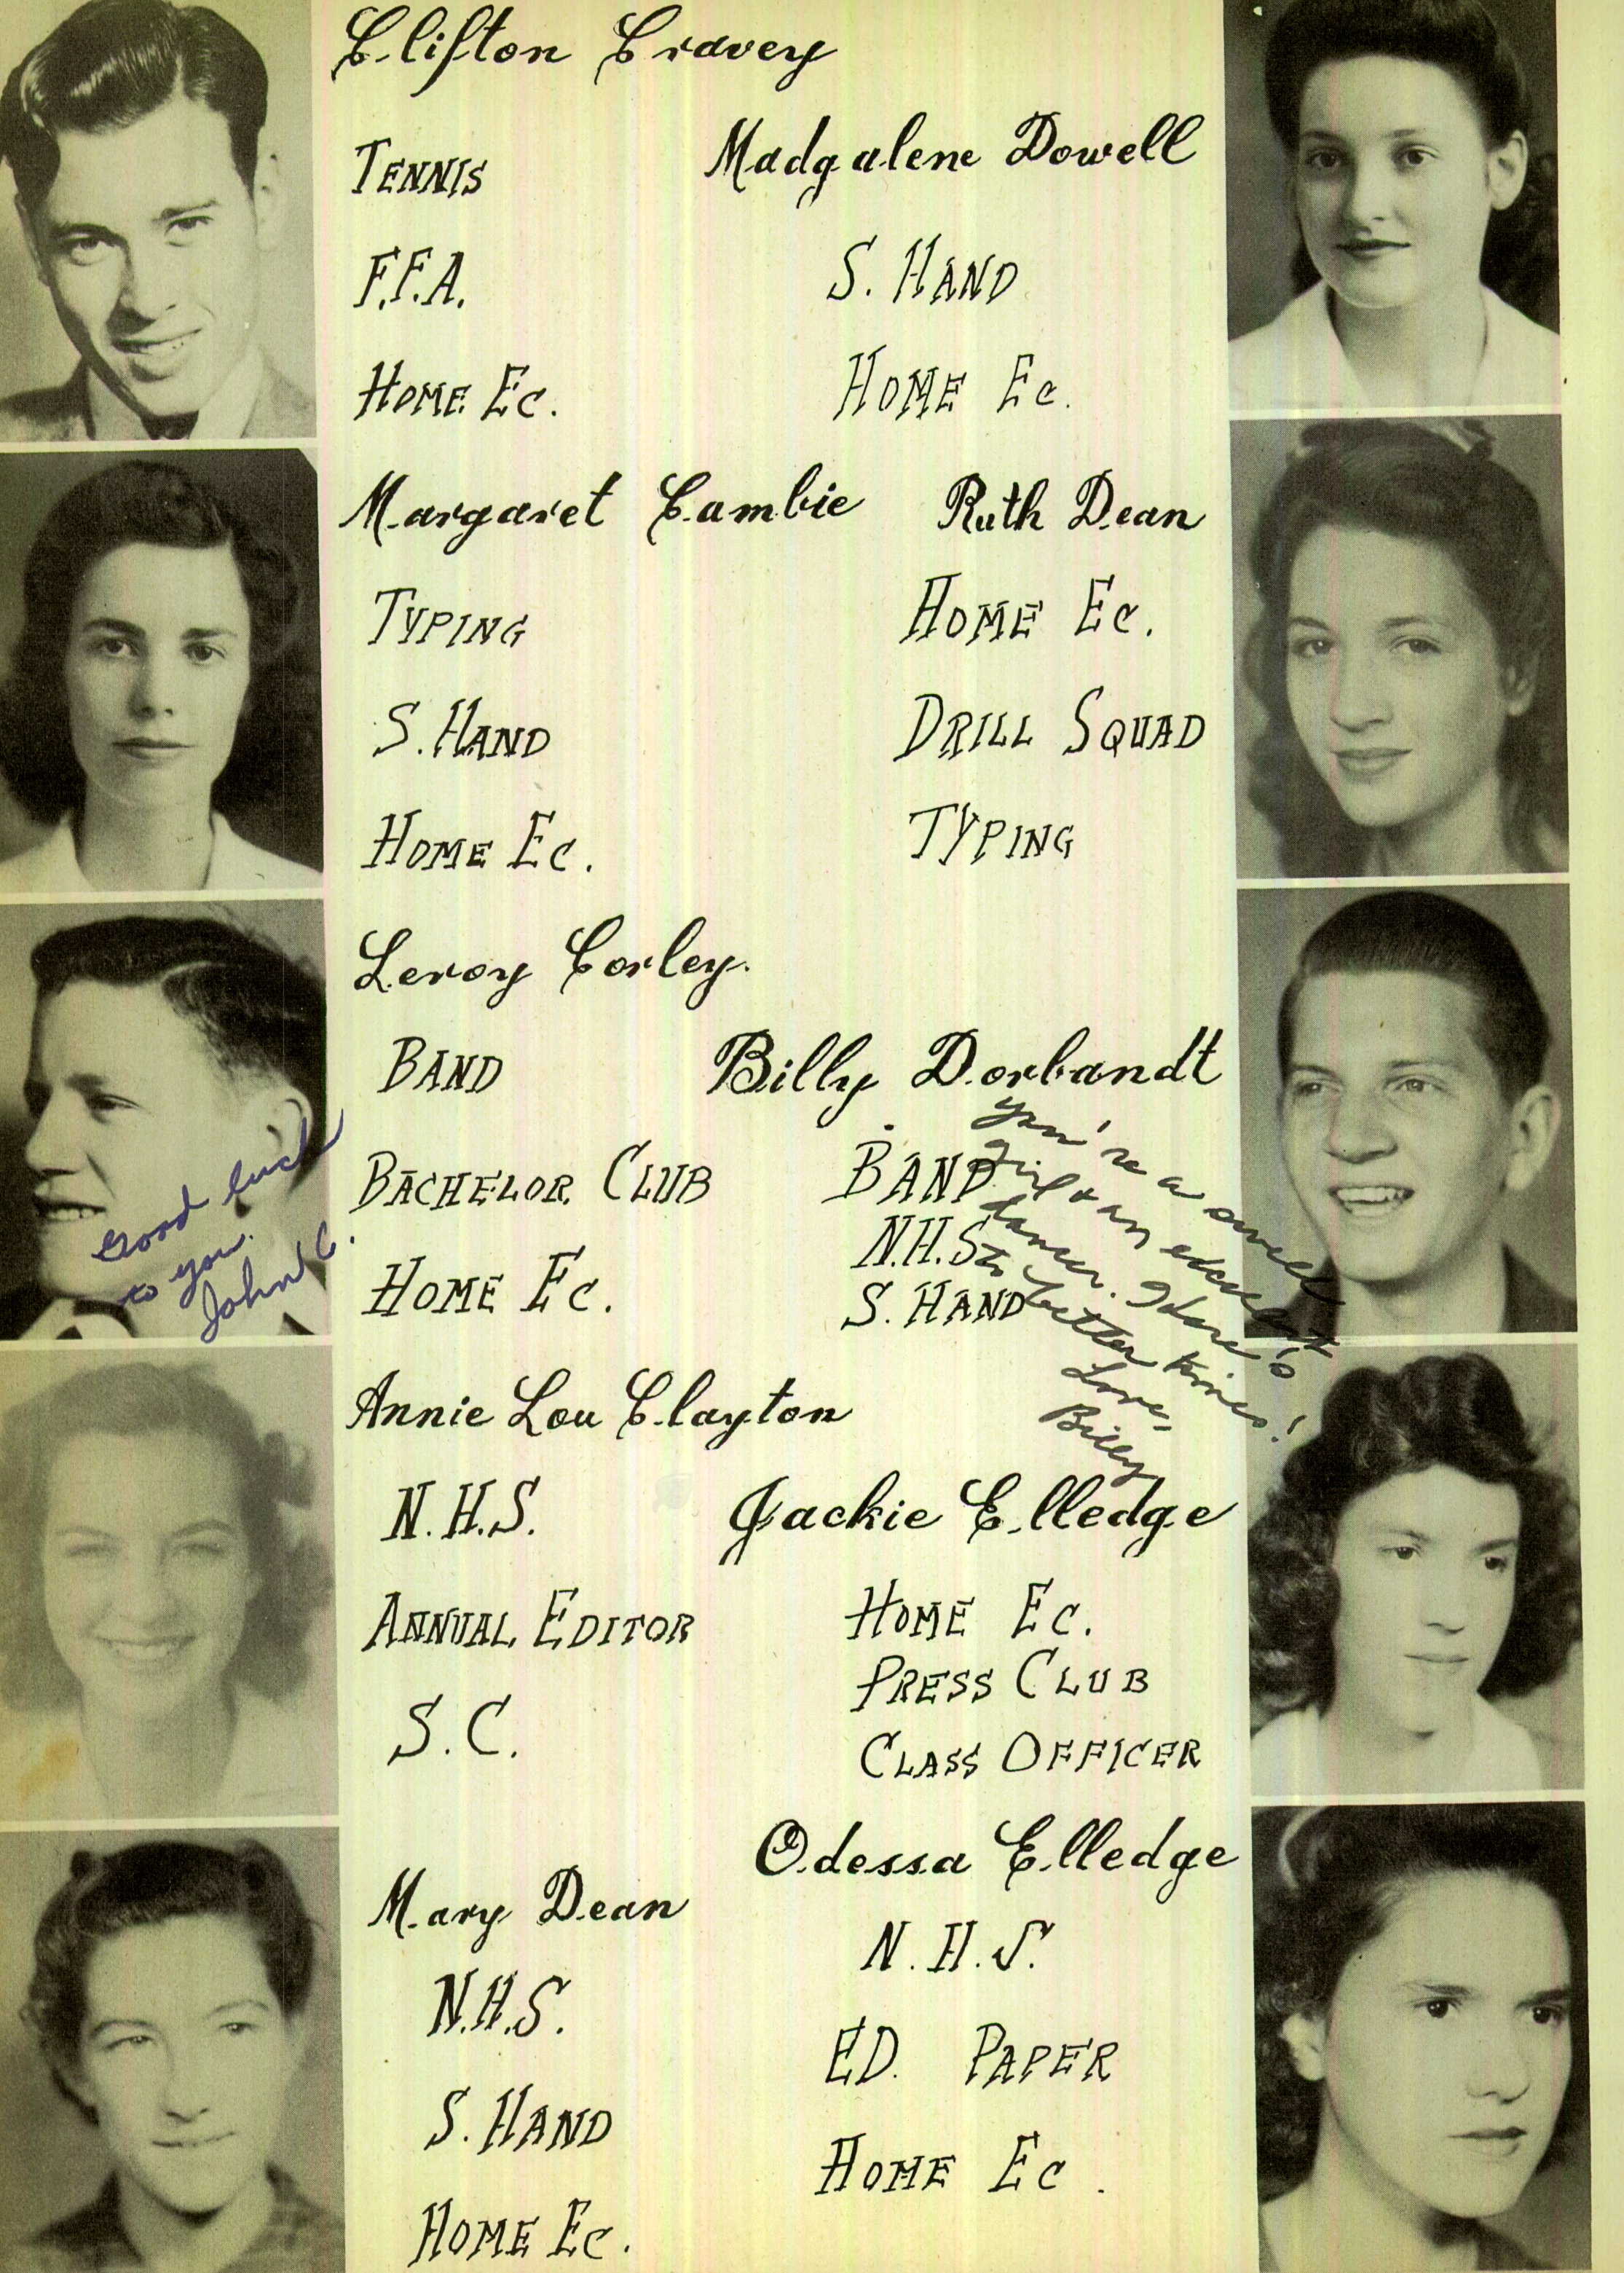 Clifton Cravey
TENNIS
F.F.A.
HOME Ec.
Madgalene Dowell
S. HAND
HOME Ec.
Margaret Cambie
TYPING
S. HAND
HOME Ec.
Ruth Dean
HOME Ec.
DRILL SQUAD
TYPING
Leroy Corley.
BAND
BACHELOR CLUB
HOME Ec.
Good luck
to you.
John C.
Billy Dorbandt
BAND
N.H.S.
S. HAND
You're a swell
girl & an excellent
dancer. Here's
to better times!
Love,
Billy
Annie Lou Clayton
N.H.S.
ANNUAL EDITOR
S.C.
Jackie Elledge
HOME Ec.
PRESS CLUB
CLASS OFFICER
Mary Dean
N.H.S.
S. HAND
HOME Ec.
Odessa Elledge
N.H.S.
ED. PAPER
HOME Ec.